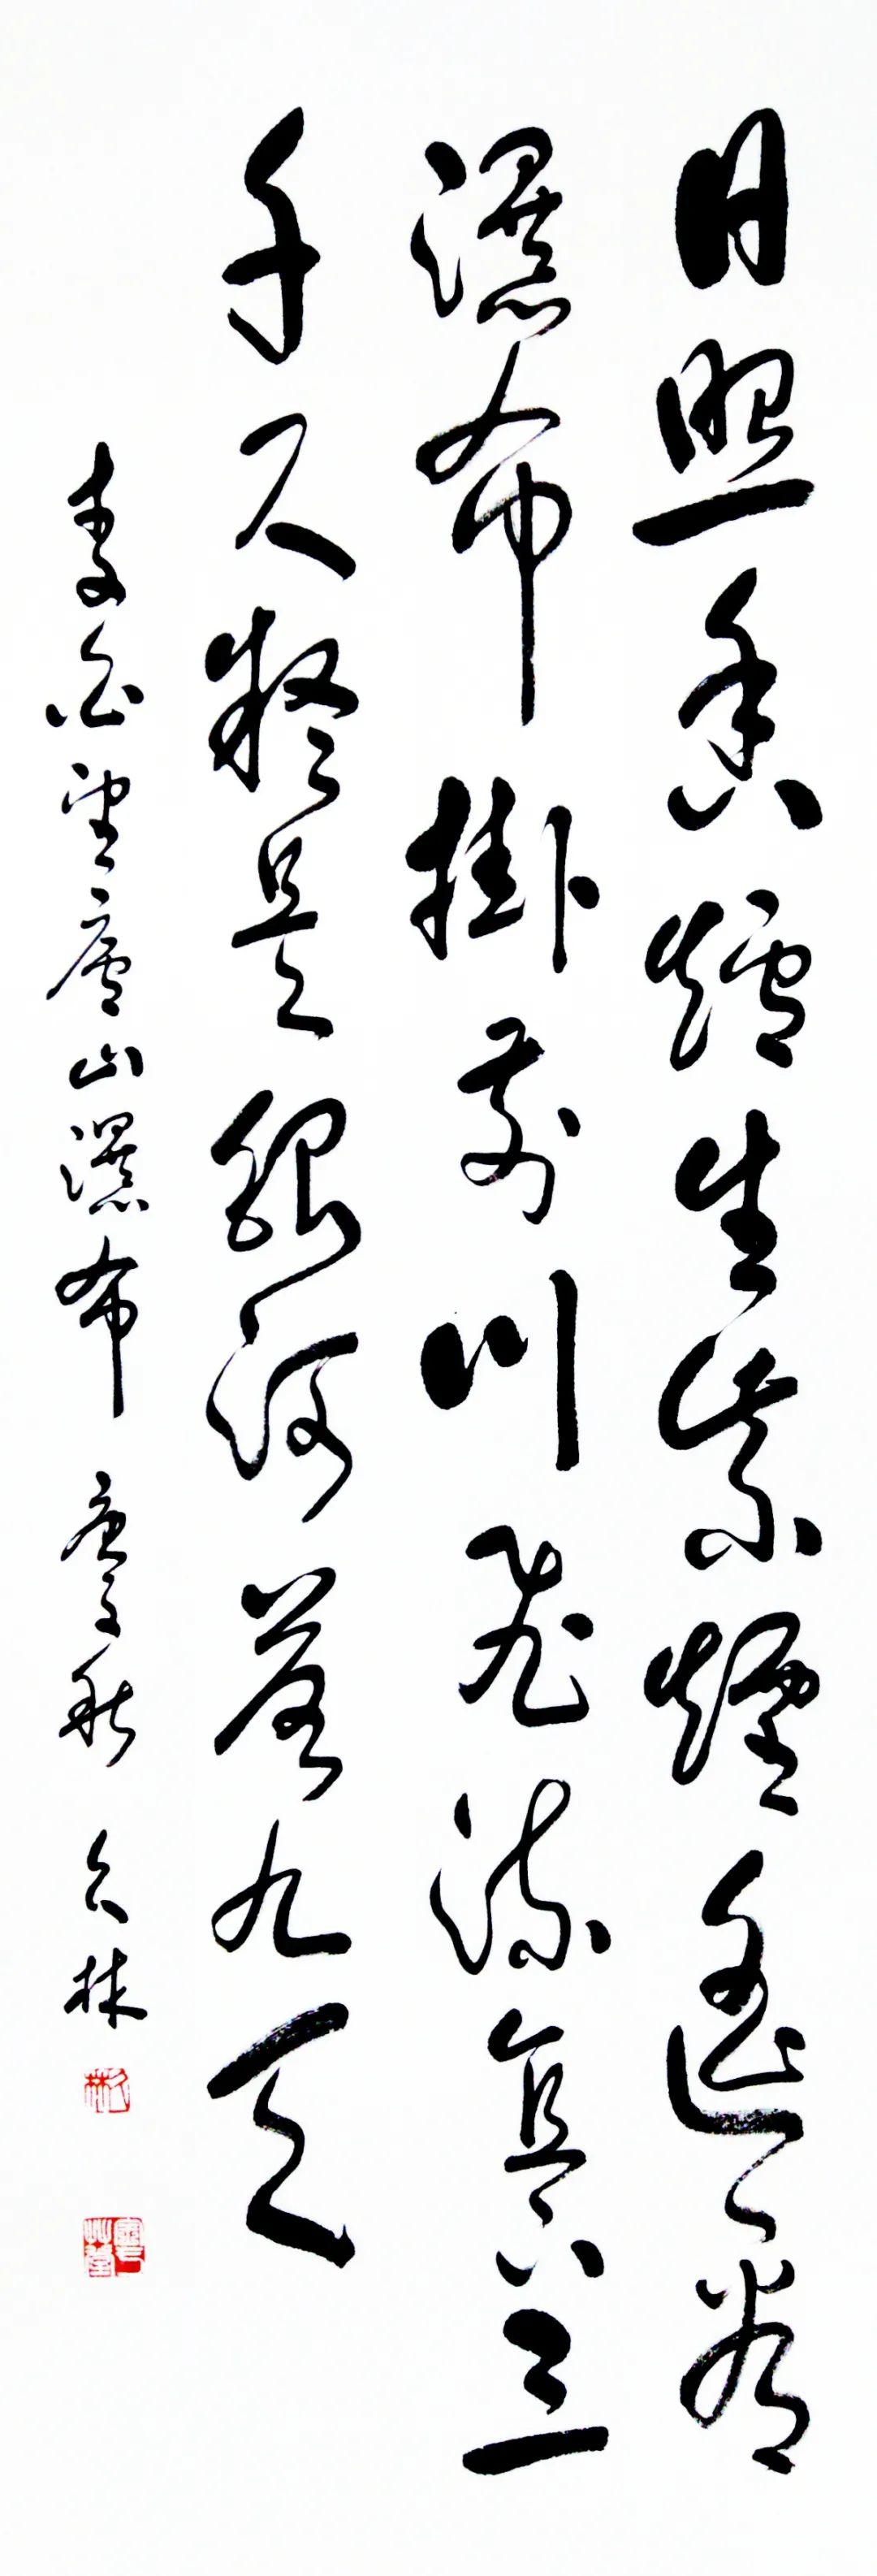 日照香爐生紫煙遙看
瀑布掛前川飛流直下三
千尺疑是銀河落九天
李白望廬山瀑布 庚子秋 久林